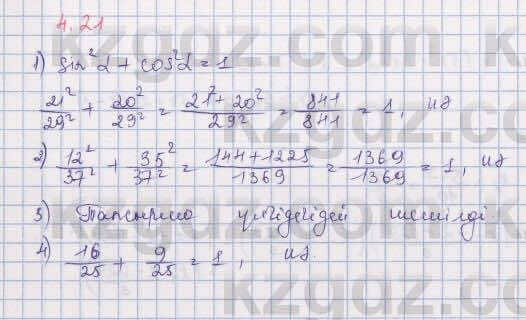 4.21
1) sin²α + cos²α = 1
21²/29² + 20²/29² = (21² + 20²)/29² = 841/841 = 1, иә
2) 12²/37² + 35²/37² = (144 + 1225)/1369 = 1369/1369 = 1, иә
3) Тапсырма үлгідегідей шешілді.
4) 16/25 + 9/25 = 1, иә.
kzgdz.com